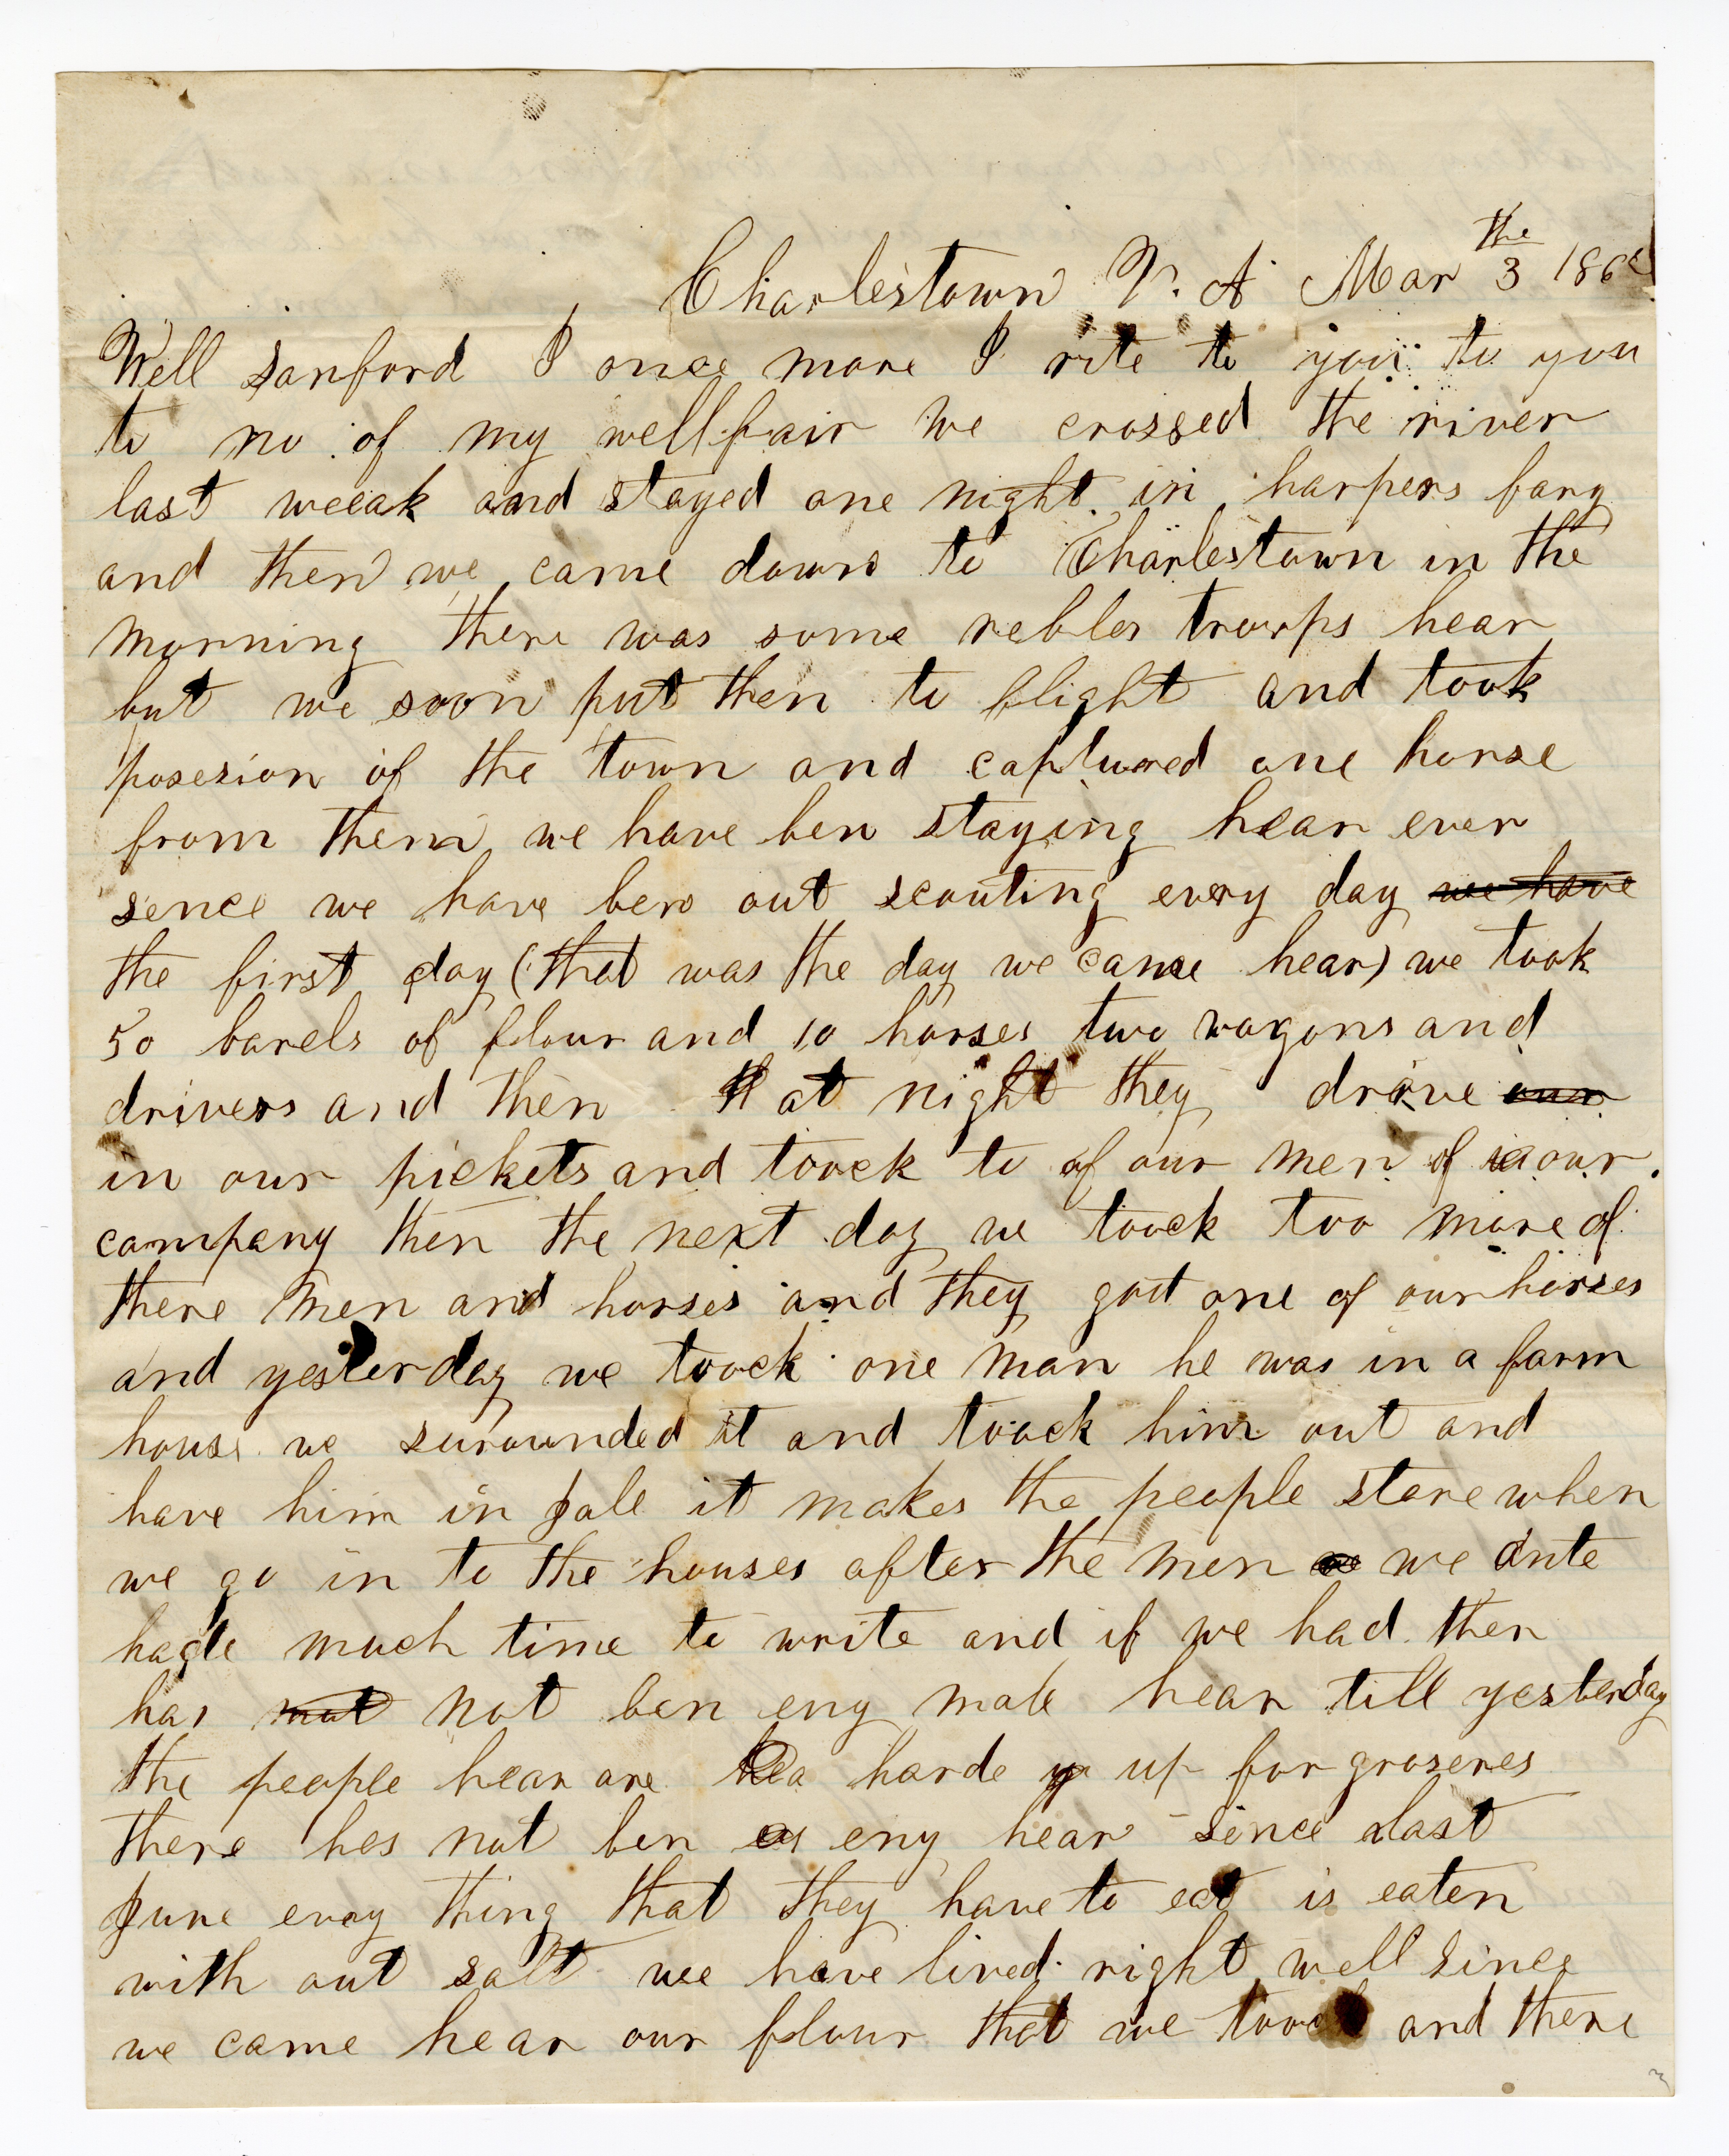 Charlestown V. A Mar 3 the 186
Well Sanford I once more I rite to you to you
to no of my wellfair We crossed the river
last weeak and stayed one night in harpers fary
and then we came down to Charlestown in the
morning there was some rebles troops hear
but we soon put then to flight and took
posesion of the town and captured one horse
from them we have ben staying hear ever
sence we have ben out scouting every day we have
the first day (that was the day we came hear) we took
50 barels of flour and 10 horses two wagons and
drivers and then at night they drove our
in our pickets and toock to of our men of our
company then the next day we toock too more of
there men and horses and they got one of our horses
and yesterday we toock one man he was in a farm
house we surounded it and toock him out and
have him in Jale it makes the people stare when
we go in to the houses after the men we dnte
hade much time to write and if we had ther
has not not ben eny male hear till yesterday
the people hear are harde up for groseres
there hes not ben eny hear since last
June evry thing that they have to eat is eaten
with out salt wee have lived right well since
we came hear our flour that we toock and there